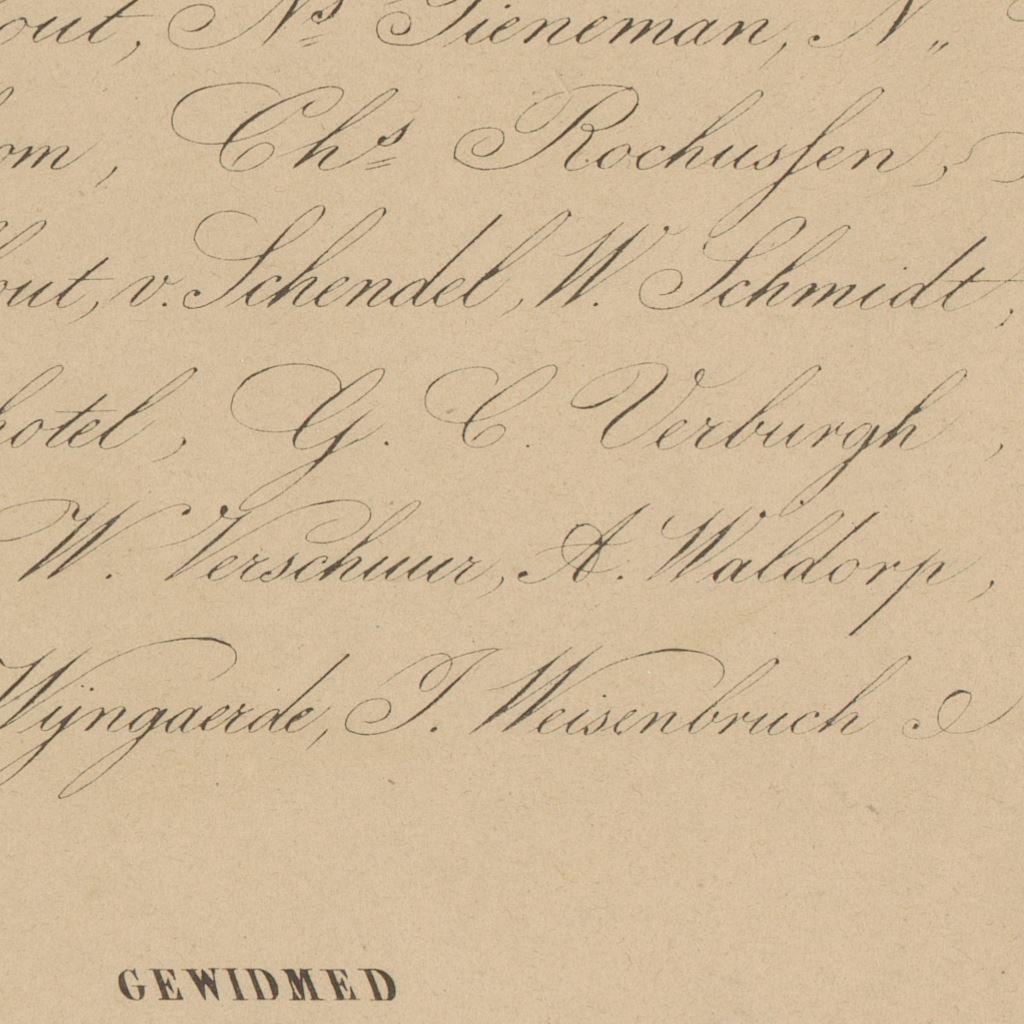 out, Ns Pieneman, N„
om, Chs Rochussen,
out, v. Schendel, W. Schmidt,
hotel, G. C. Verburgh,
W. Verschuur, A. Waldorp,
Wijngaerde, J. Weisenbruch
GEWIDMED